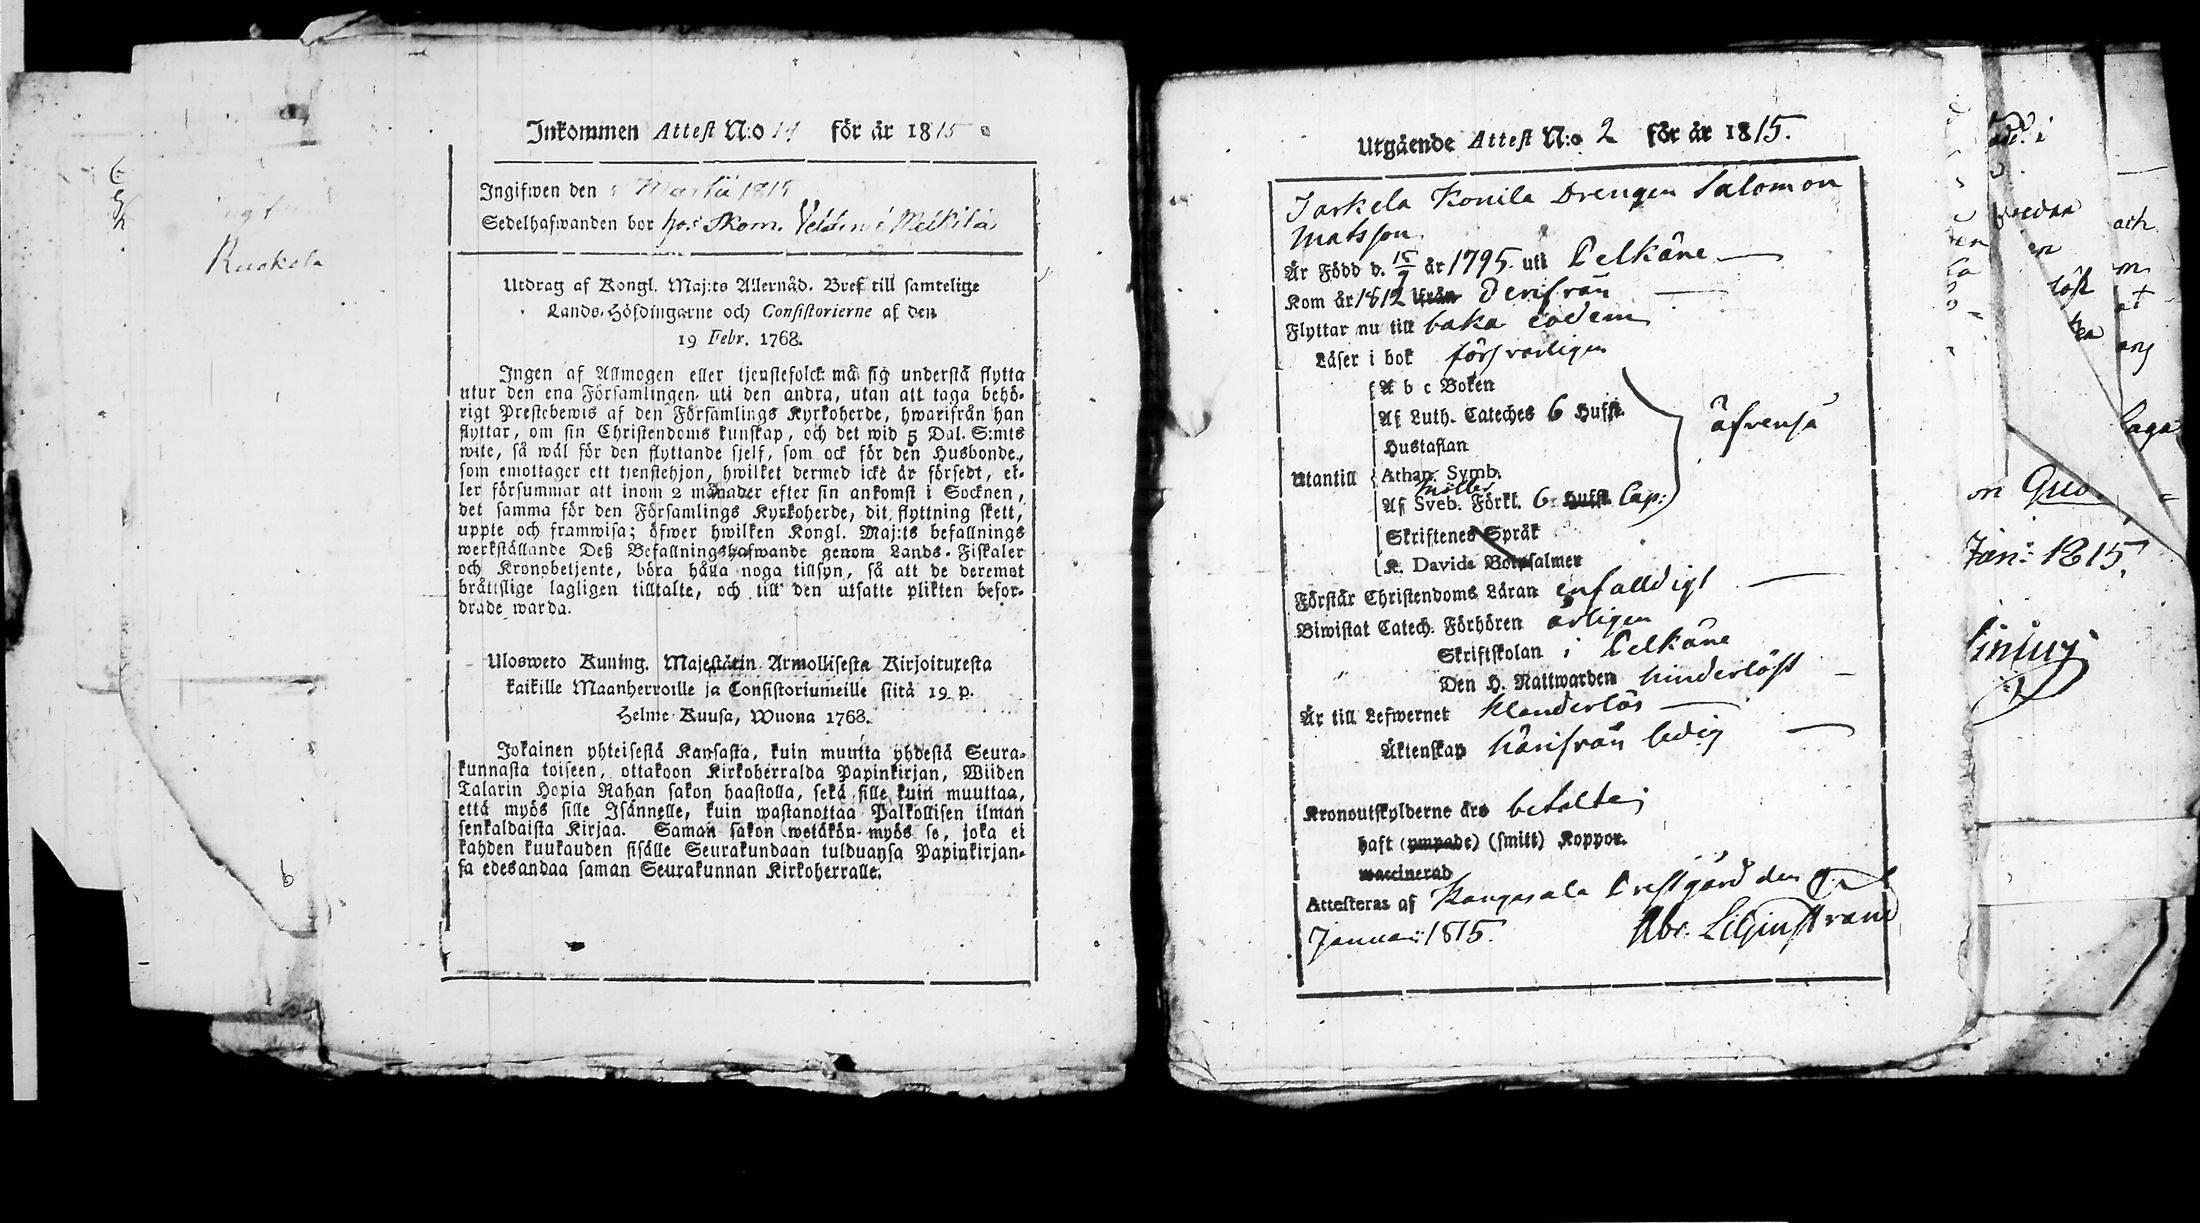 Ruskela
6
Inkommen Attest N:o 14 för år 1815
Ingifwen den Martii 1815
Sedelhafwanden bor hos Skom. Veldin i Mälkilä
Utdrag af Kongl. Maj:ts Allernåd. Bref till samtelige
Lands-Höfdingarne och Consistorierne af den
19 Febr. 1768.
Ingen af Allmogen eller tjenstefolck må sig understå flytta
utur den ena Församlingen uti den andra, utan att taga behö-
rigt Prestebewis af den Församlings Kyrkoherde, hwarifrån han
flyttar, om sin Christendoms kunskap, och det wid 5 Dal. S:mts
wite, så wäl för den flyttande sjelf, som ock för den Husbonde,
som emottager ett tjenstehjon, hwilket dermed icke är försedt, el-
ler försummar att inom 2 månader efter sin ankomst i Socknen,
det samma för den Församlings Kyrkoherde, dit flyttning skett,
uppte och framwisa; öfwer hwilken Kongl. Maj:ts befallnings
werkställande Deß Befallningshafwande genom Lands-Fiskaler
och Kronobetjente, böra hålla noga tillsyn, så att de deremot
bråttslige lagligen tilltalte, och till den utsatte plikten befor-
drade warda.
Uloswero Kuning. Majestätin Armollisesta Kirjoituxesta
kaikille Maanherroille ja Consistoriumeille siitä 19 p.
Helme-Kuusa, Wuona 1768.
Jokainen yhteisestä Kansasta, kuin muutta yhdestä Seura-
kunnasta toiseen, ottakoon Kirkoherralda Papinkirjan, Wiiden
Talarin Hopia Rahan sakon haastolla, sekä sille kuin muuttaa,
että myös sille Isännelle, kuin wastanottaa Palkollisen ilman
senkaldaista Kirjaa. Saman sakon wetäkön myös se, joka ei
kahden kuukauden sisälle Seurakundaan tulduansa Papinkirjan-
sa edesandaa saman Seurakunnan Kirkoherralle.
Utgående Attest N:o 2 för år 1815.
Jarkela Konila Drengen Salomon
Matsson
Är Född d. 15/9 år 1795 uti Pelkäne
Kom år 1812 ifrån derifrån
Flyttar nu till baka eodem
Läser i bok försvarligen
A b c Boken
Af Luth. Cateches 6 Hufst.
Hustaflan
Utantill Athan. Symb. äfvenså
Möller
Af Sveb. Förkl. 6 Hufst. Cap:
Skriftenes Språk
K. Davids Botpsalmer
Förstår Christendoms Läran enfalldigt
Biwistat Catech. Förhören årligen
Skriftskolan i Pelkäne
" Den H. Nattwarden hinderlöst
Är till Lefwernet klanderlös
Äktenskap härifrån ledig
Kronoutskylderne äro betalte;
haft (ympade) (smitt) Koppor.
waccinerad
Attesteras af Kangasala Prestgård den
Januarii 1815. Abr. Liljinstrand
och
Jan: 1815.